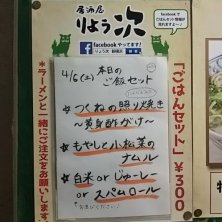 居酒屋
りょう次
facebook やってます!
りょう次
facebook で
ごはんセット情報が
見れますよ〜♪
4/6(土) 本日の
ご飯セット
☆つくねの照り焼き
〜黄身酢がけ〜
☆もやしと小松菜の
ナムル
☆白米 or じゅーしー
or スパムロール
「ごはんセット」¥300
*ラーメンと一緒にご注文をお願いします。